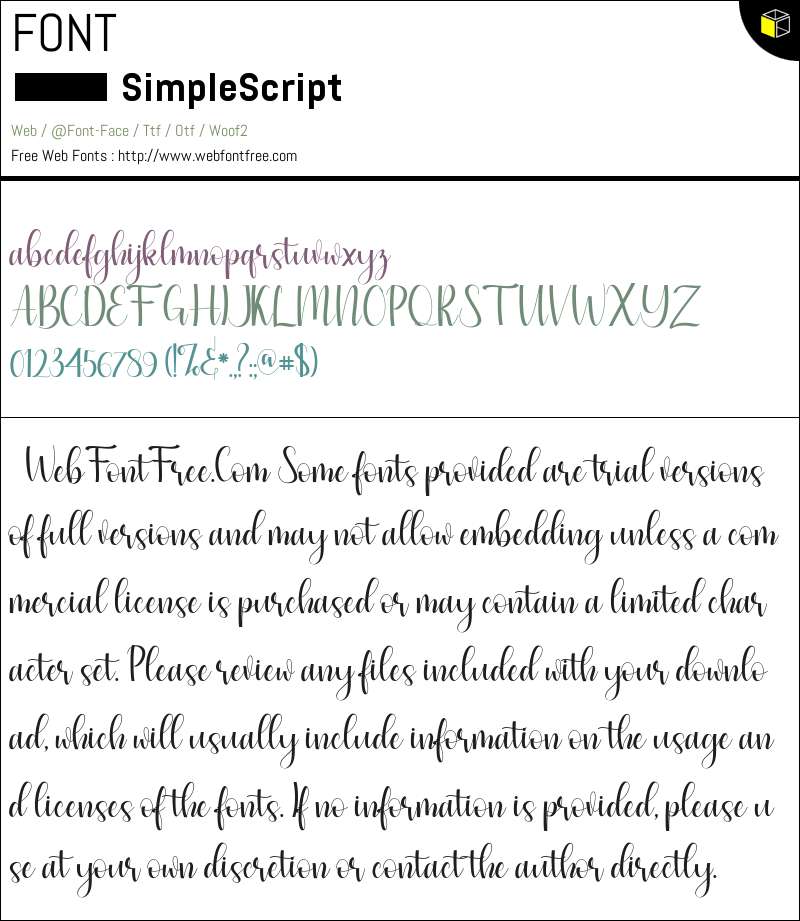 FONT
SimpleScript
Web / @Font-Face / Ttf / Otf / Woof2
Free Web Fonts : http://www.webfontfree.com
abcdefghijklmnopqrstuvwxyz
ABCDEFGHIJKLMNOPQRSTUVWXYZ
0123456789 (!%&*.,?:;@#$)
WebFontFree.Com Some fonts provided are trial versions
of full versions and may not allow embedding unless a com
mercial license is purchased or may contain a limited char
acter set. Please review any files included with your downlo
ad, which will usually include information on the usage an
d licenses of the fonts. If no information is provided, please u
se at your own discretion or contact the author directly.